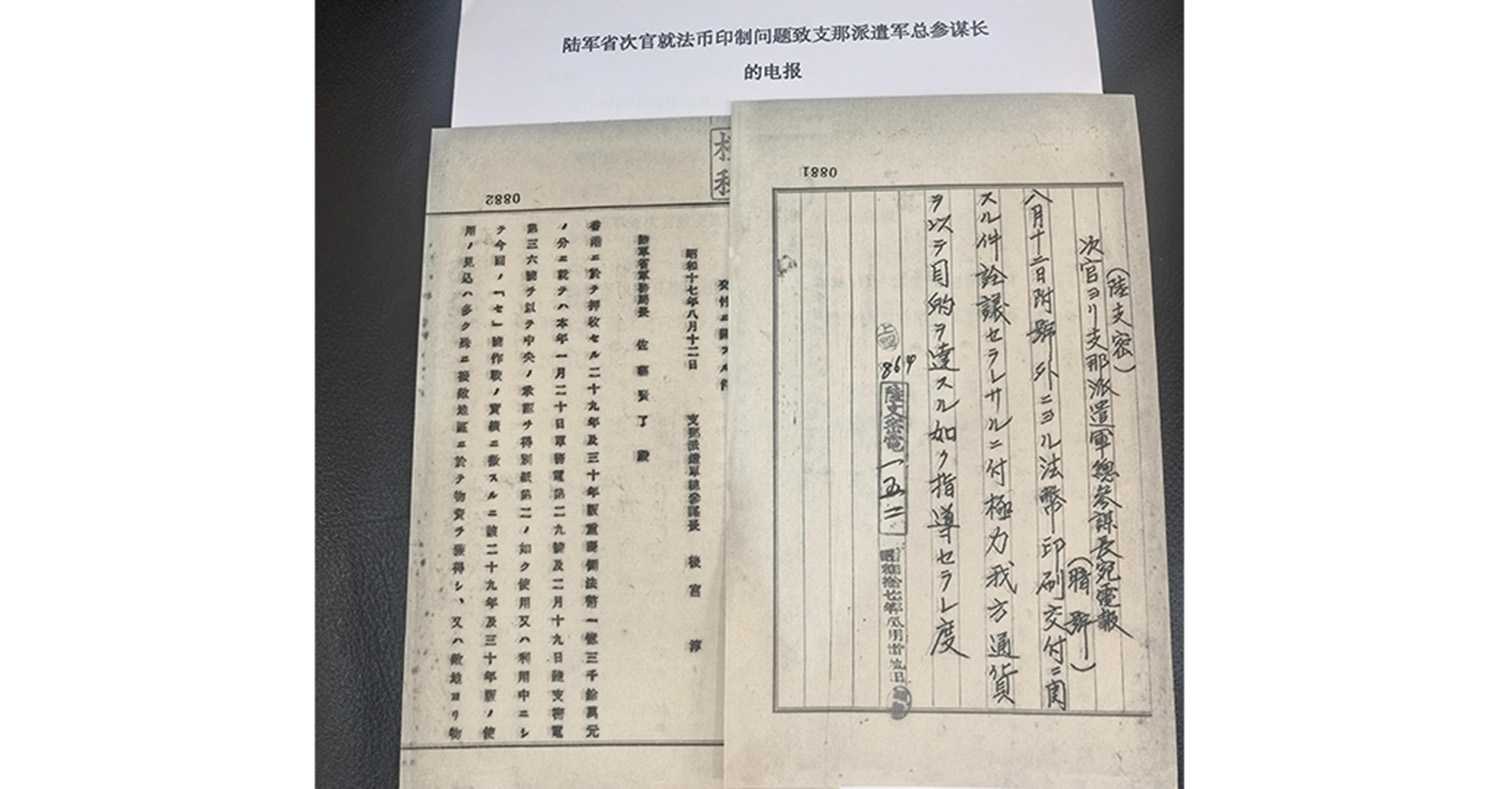 陆军省次官就法币印制问题致支那派遣军总参谋长
的电报
0881
(陸支密)
次官ヨリ支那派遣軍總参謀長宛電報
(暗號)
八月十二日附號外ニヨル法幣印刷交付ニ関
スル件詮議セラレサルニ付極力我方通貨
ヲ以テ目的ヲ達スル如ク指導セラレ度
864
陸支密電一五二
0882
昭和十七年八月十二日
支那派遣軍總參謀長 後宮 淳
陸軍省軍務局長 佐藤賢了 殿
香港ニ於テ押收セル二十九年及三十年版重慶側法幣一億三千餘萬元
ノ分ニ就テハ本年一月二十日軍務電第二九號及二月十九日陸支密電
第三六號ヲ以テ中央ノ承認ヲ得別紙第二ノ如ク使用又ハ利用中ニシ
テ今回ノ「セ」號作戰ノ實績ニ徴スルニ該二十九年及三十年版ノ使
用ノ見込ハ多ク殊ニ接敵地區ニ於テ物資ヲ獲得シ、又ハ敵地ヨリ物